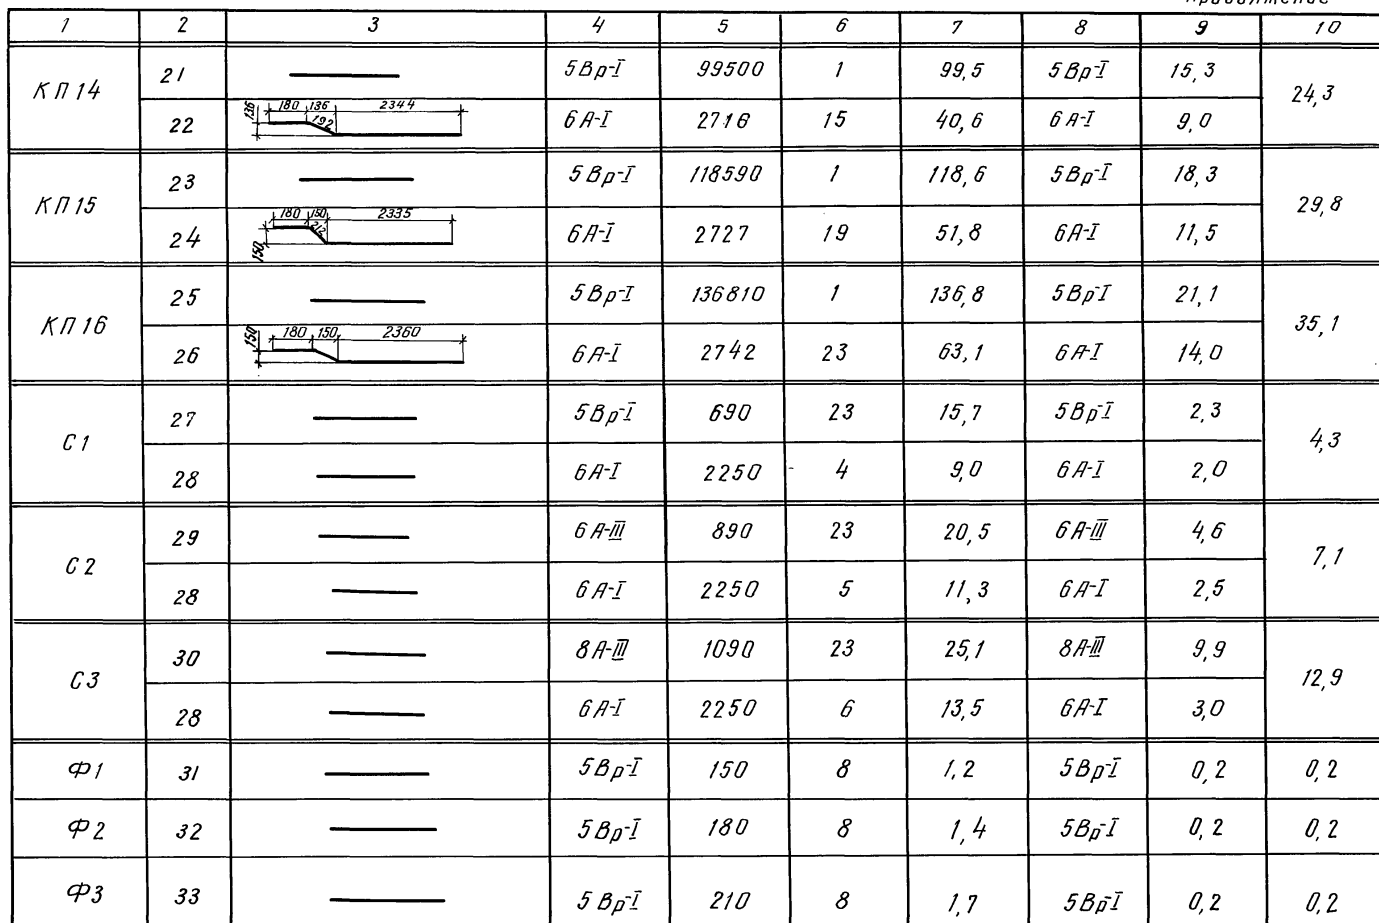 Продолжение
1 2 3 4 5 6 7 8 9 10
КП14 21 5Вр-I 99500 1 99,5 5Вр-I 15,3 24,3
136 180 136 2344 192
22 6А-I 2716 15 40,6 6А-I 9,0
КП15 23 5Вр-I 118590 1 118,6 5Вр-I 18,3 29,8
150 180 150 2335 212
24 6А-I 2727 19 51,8 6А-I 11,5
КП16 25 5Вр-I 136810 1 136,8 5Вр-I 21,1 35,1
150 180 150 2360
26 6А-I 2742 23 63,1 6А-I 14,0
С1 27 5Вр-I 690 23 15,7 5Вр-I 2,3 4,3
28 6А-I 2250 4 9,0 6А-I 2,0
С2 29 6А-III 890 23 20,5 6А-III 4,6 7,1
28 6А-I 2250 5 11,3 6А-I 2,5
С3 30 8А-III 1090 23 25,1 8А-III 9,9 12,9
28 6А-I 2250 6 13,5 6А-I 3,0
Ф1 31 5Вр-I 150 8 1,2 5Вр-I 0,2 0,2
Ф2 32 5Вр-I 180 8 1,4 5Вр-I 0,2 0,2
Ф3 33 5Вр-I 210 8 1,7 5Вр-I 0,2 0,2